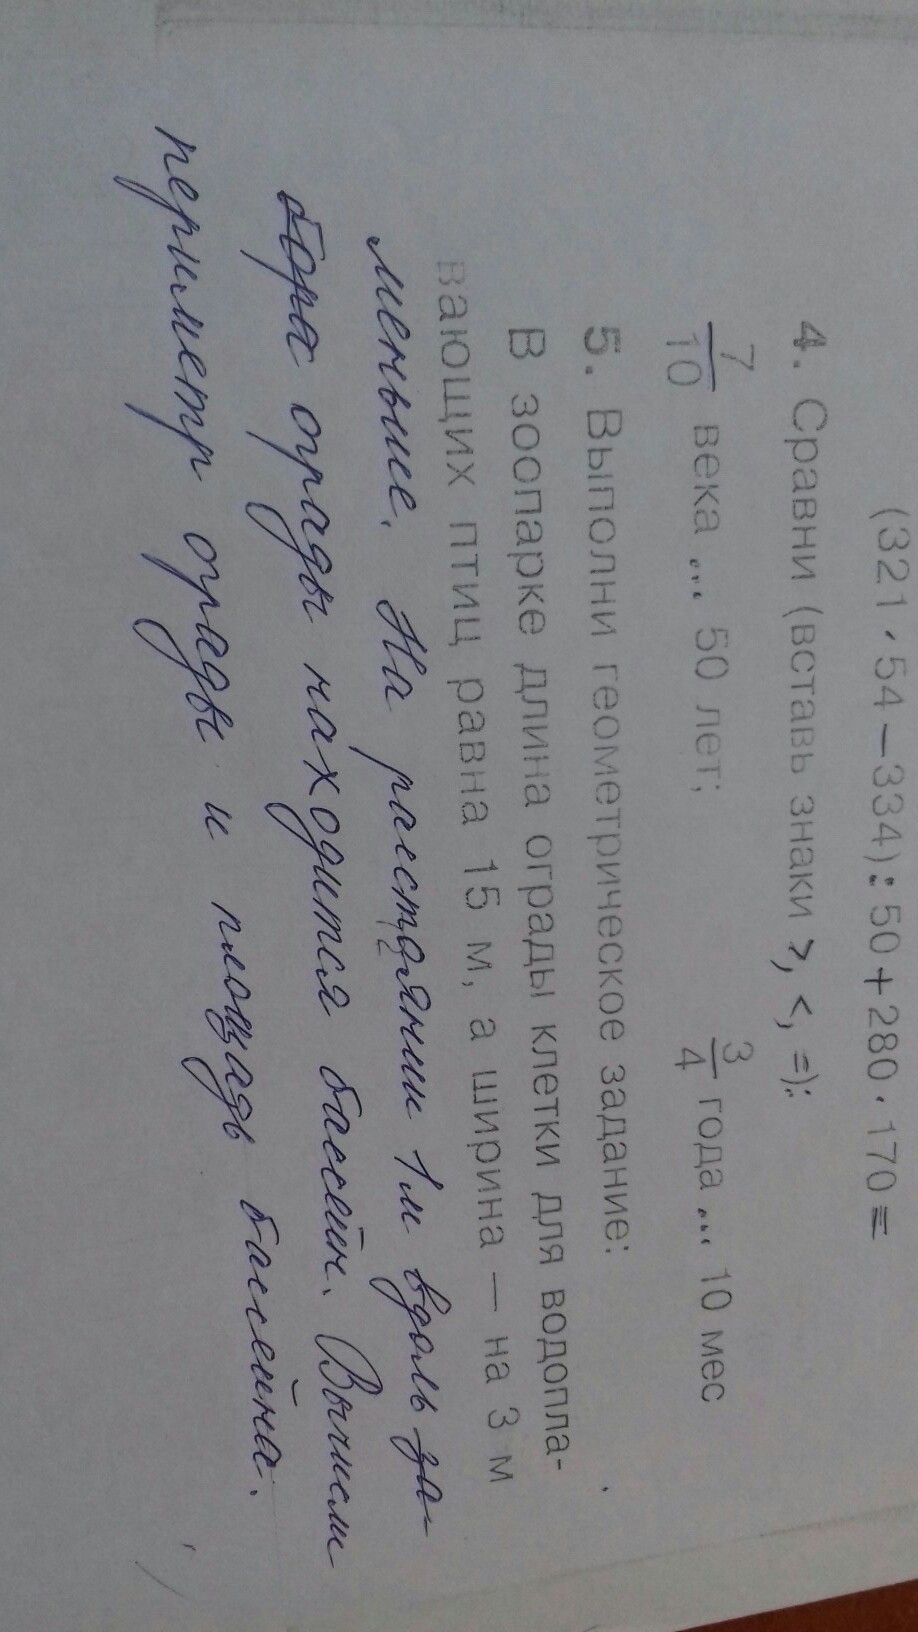 (321 · 54 – 334) : 50 + 280 · 170 =
4. Сравни (вставь знаки >, <, =):
7/10 века ... 50 лет; 3/4 года ... 10 мес
5. Выполни геометрическое задание:
В зоопарке длина ограды клетки для водопла-
вающих птиц равна 15 м, а ширина — на 3 м
меньше. На расстоянии 1м вдоль за-
бора ограды находится бассейн. Вычисли
периметр ограды и площадь бассейна.